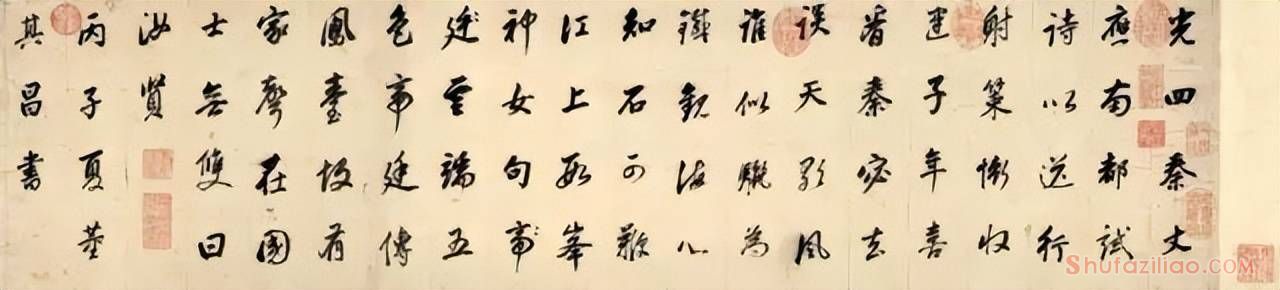 光四秦丈
應南都試
詩以送行
射策慚收
建子年喜
看秦宓去
天風
誰似為
海心
知石可鞭
江上數峯
神女句帝
廷雲端五
色帝廷傳
鳳臺故有
家聲在國
士無雙曰
汝賢
丙子夏董
其昌書
Shufaziliao.com